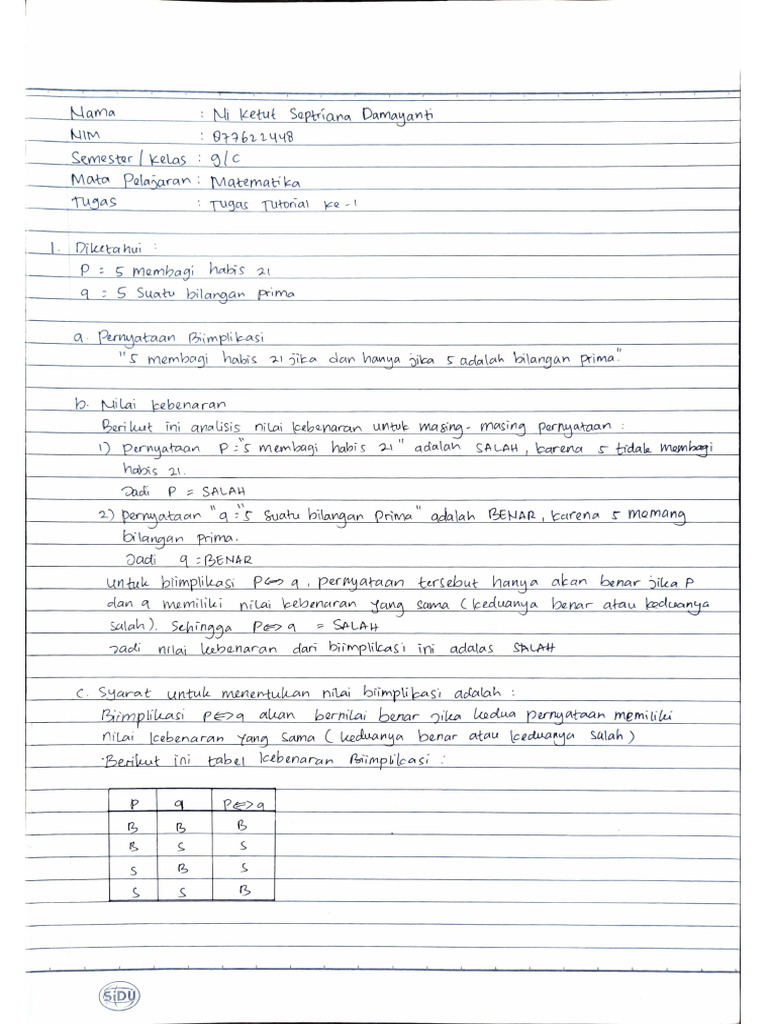 Nama : Ni Ketut Septriana Damayanti
NIM : 077622448
Semester / Kelas : 9/C
Mata Pelajaran : Matematika
Tugas : Tugas Tutorial ke-1
1. Diketahui :
P = 5 membagi habis 21
q = 5 Suatu bilangan prima
a. Pernyataan Biimplikasi
"5 membagi habis 21 jika dan hanya jika 5 adalah bilangan prima."
b. Nilai kebenaran
Berikut ini analisis nilai kebenaran untuk masing-masing pernyataan :
1) pernyataan P = "5 membagi habis 21" adalah SALAH, karena 5 tidak membagi
habis 21.
Jadi P = SALAH
2) pernyataan "q = "5 Suatu bilangan prima" adalah BENAR, karena 5 memang
bilangan prima.
Jadi q = BENAR
Untuk biimplikasi P<=>q, pernyataan tersebut hanya akan benar jika P
dan q memiliki nilai kebenaran yang sama (keduanya benar atau keduanya
salah). Sehingga P<=>q = SALAH
Jadi nilai kebenaran dari biimplikasi ini adalas SALAH
c. Syarat untuk menentukan nilai biimplikasi adalah :
Biimplikasi P<=>q akan bernilai benar jika kedua pernyataan memiliki
nilai kebenaran yang sama (keduanya benar atau keduanya salah)
Berikut ini tabel kebenaran Biimplikasi :
P q P<=>q
B B B
B S S
S B S
S S B
SiDU